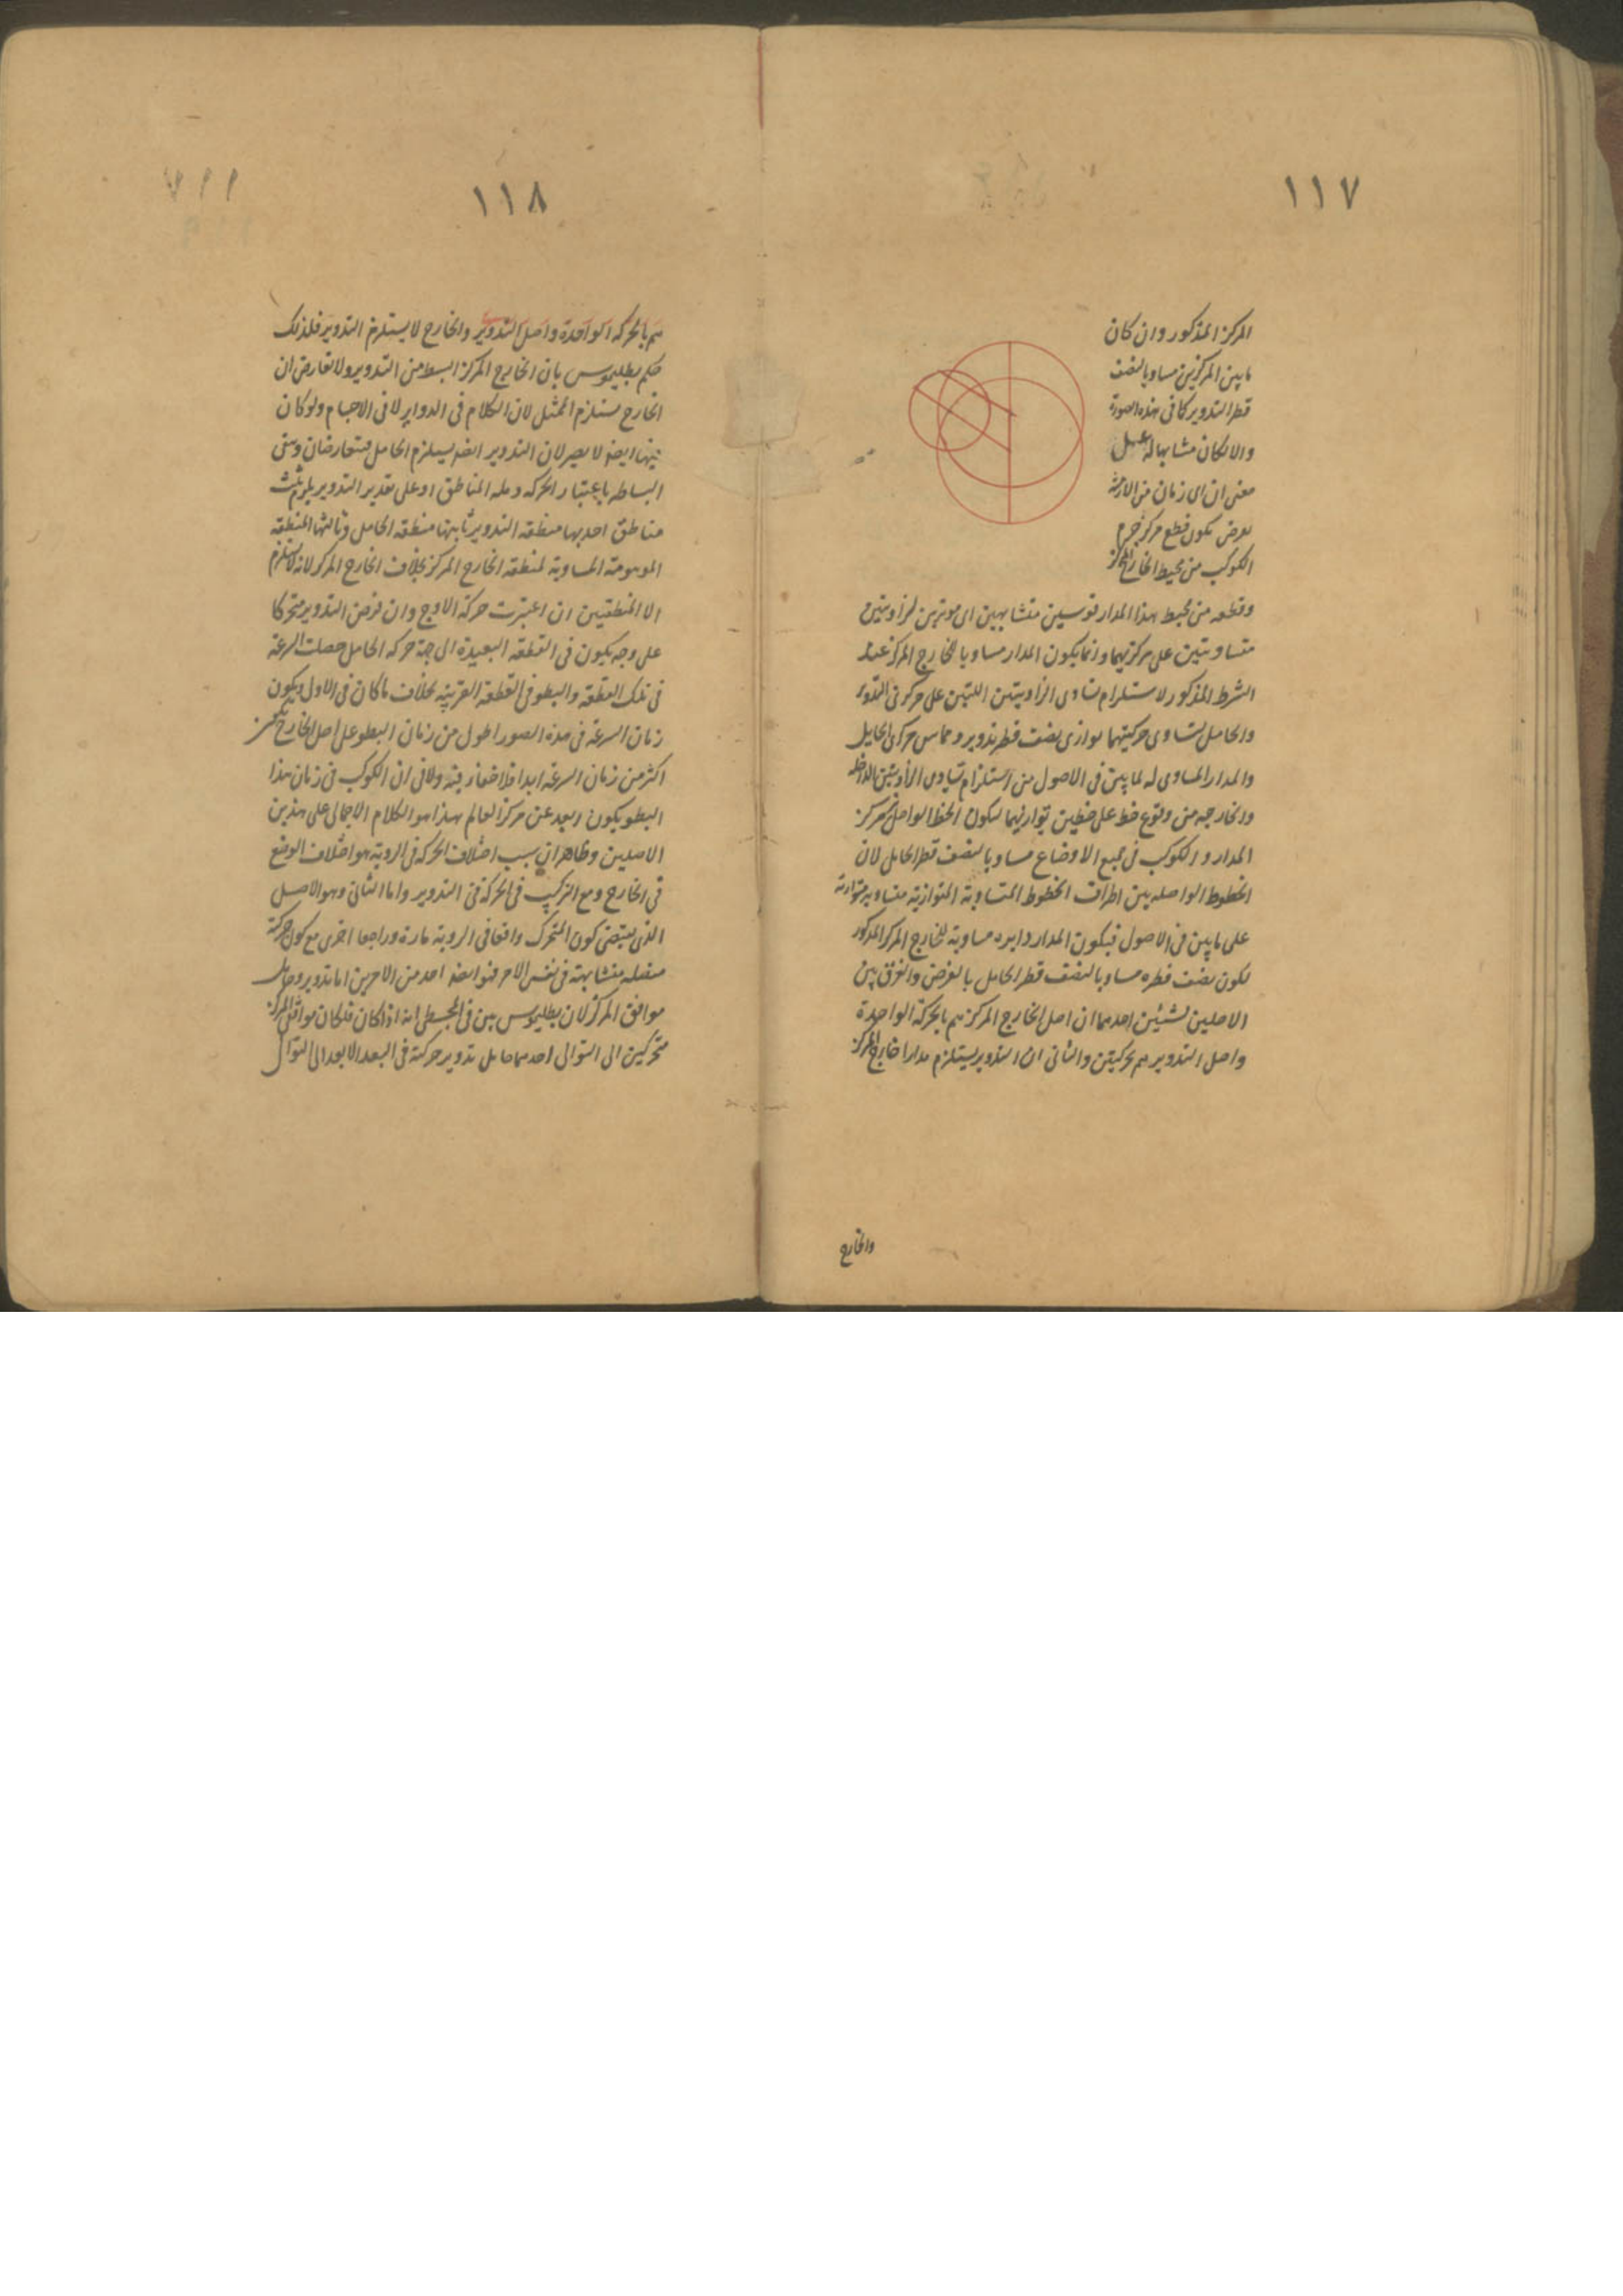 ١١٧
المركز المذكور وان كان
ما بين المركزين مساويا لنصف
قطر التدوير كما فى هذه الصورة
والا لكان مشابها له على
معنى ان اى زمان من الازمنة
يعرض يكون قطع مركز جرم
الكوكب من محيط الخارج المركز
وقطعه من محيط هذا المدار قوسين متشابهين اى موترين لزاويتين
متساويتين على مركزيهما وانما يكون المدار مساويا للخارج المركز عند
الشرط المذكور لاستلزام تساوى الزاويتين اللتين على مركزى التدوير
والحامل لتساوى حركتيهما توازى نصف قطر تدوير و مركزى الحامل
والمدار المساوى له لما بين فى الاصول من استلزام تساوى الزاويتين الداخلة
والخارجه من وقوع خط على خطين توازيهما ليكون الخط الواصل بين مركز
المدار و الكوكب فى جميع الاوضاع مساويا لنصف قطر الحامل لان
الخطوط الواصله بين اطراف الخطوط المتساوية المتوازية متساوية متوازية
على ما بين فى الاصول فيكون المدار دايره مساوية للخارج المركز المذكور
لكون نصف قطره مساويا لنصف قطر الحامل بالفرض والفرق بين
الاصلين لشيئين احدهما ان اصل الخارج المركز يتم بالحركة الواحدة
واصل التدوير يتم بحركتين والثانى ان التدوير يستلزم مدارا خارج المركز
والخارج
١١٨
يتم بالحركه الواحدة واصل التدوير والخارج لا يستلزم التدوير فلذلك
حكم بطليموس بان الخارج المركز ابسط من التدوير ولا تعارض ان
الخارج يستلزم الممثل لان الكلام فى الدواير لا فى الاجسام ولو كان
فيها ايضا لا يضر لان التدوير ايضا يستلزم الحامل فتعارضان وتبقى
البساطه باعتبار الحركه و المناطق اذ على تقدير التدوير يلزم ثلث
مناطق احديها منطقه التدوير ثانيتها منطقه الحامل وثالثها المنطقه
الموهومة المساوية لمنطقه الخارج المركز بخلاف الخارج المركز لانه لا يستلزم
الا المنطقتين ان اعتبرت حركة الاوج وان فرض التدوير متحركا
على وجه يكون فى القطعه البعيدة الى جهة حركه الحامل حصلت السرعة
فى تلك القطعه والبطو فى القطعة القريبه بخلاف ما كان فى الاول ويكون
زمان السرعة فى هذه الصور اطول من زمان البطو على اصل الخارج
اكثر من زمان السرعة ابدا فلا خفاء فيه ولا فى ان الكوكب فى زمان هذا
البطو يكون ابعد عن مركز العالم هذا هو الكلام الاجمالى على هذين
الاصلين وظاهر ان سبب اختلاف الحركة فى الروية هو اختلاف الوضع
فى الخارج ومع التركيب فى الحركة فى التدوير واما الثانى وهو الاصل
الذى يقتضى كون المتحرك واقفا فى الروية تارة وراجعا اخرى مع كون حركته
متصله متشابهة فى نفس الامر فهو ايضا احد من الامرين اما تدوير وحامل
موافق المركز لان بطليموس بين فى المجسطى انه اذا كان فلكان موافق المركز
متحركين الى التوالى احدهما حامل تدوير حركته فى البعد الابعد الى التوالى